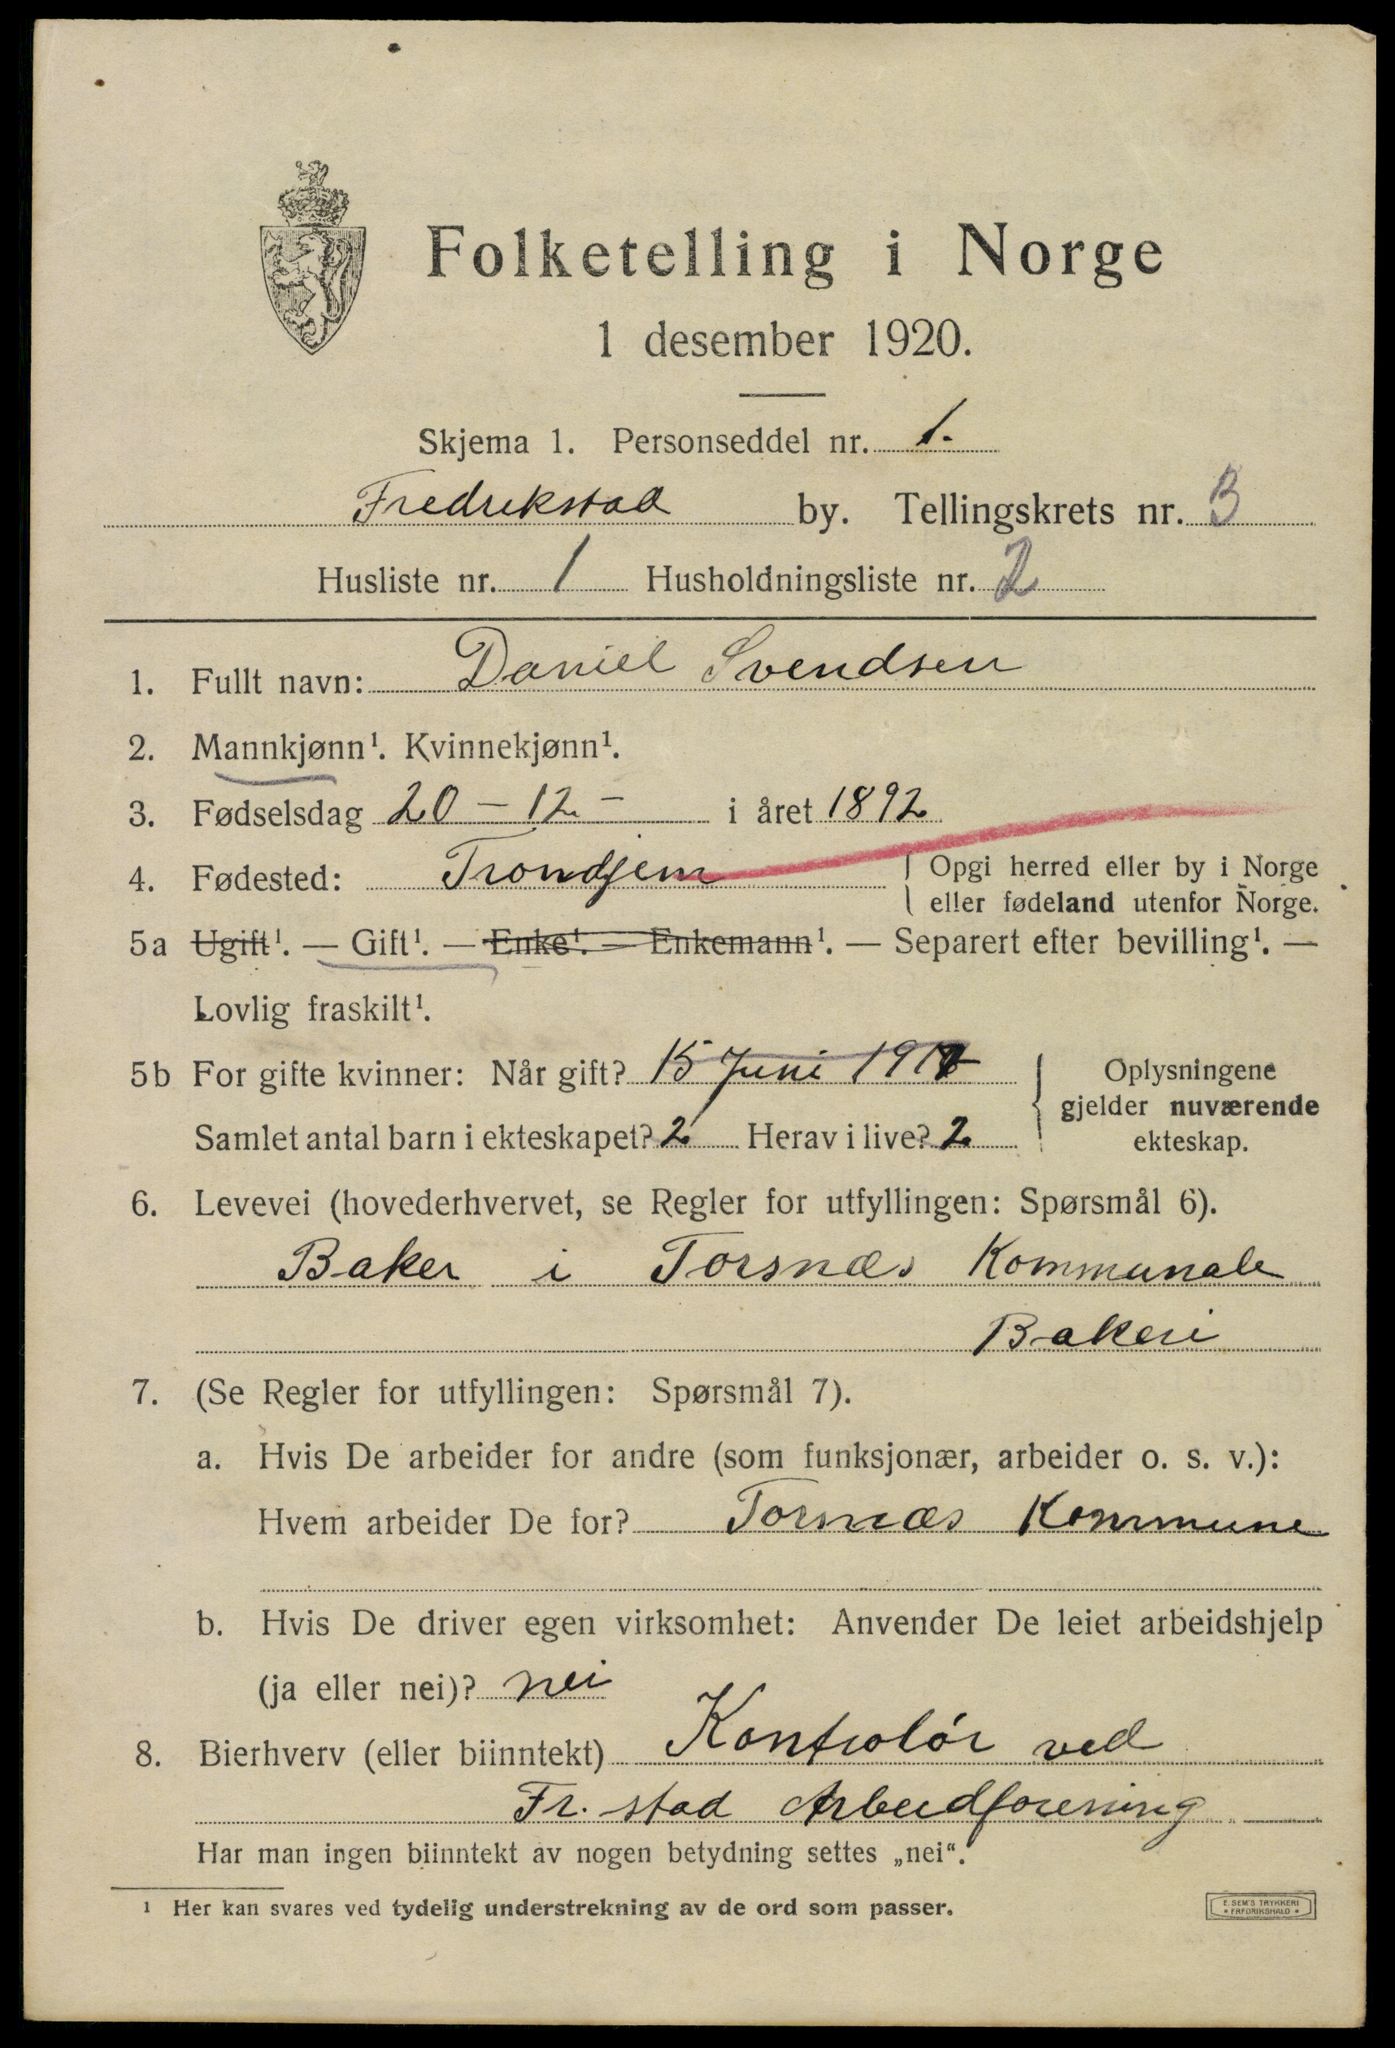 Folketelling i Norge
1 desember 1920.
Skjema 1. Personseddel nr. 1.
Fredrikstad by. Tellingskrets nr. 3
Husliste nr. 1 Husholdningsliste nr. 2
1. Fullt navn: Daniel Svendsen
2. Mannkjønn¹. Kvinnekjønn¹.
3. Fødselsdag 20 – 12 – i året 1892
4. Fødested: Trondjem Opgi herred eller by i Norge
eller fødeland utenfor Norge.
5a Ugift¹. — Gift¹. — Enke¹. — Enkemann¹. — Separert efter bevilling¹. —
Lovlig fraskilt¹.
5b For gifte kvinner: Når gift? 15 Juni 1917
Samlet antal barn i ekteskapet? 2 Herav i live? 2
Oplysningene
gjelder nuværende
ekteskap.
6. Levevei (hovederhvervet, se Regler for utfyllingen: Spørsmål 6).
Baker i Torsnæs Kommunale
Bakeri
7. (Se Regler for utfyllingen: Spørsmål 7).
a. Hvis De arbeider for andre (som funksjonær, arbeider o. s. v.):
Hvem arbeider De for? Torsnæs Kommune
b. Hvis De driver egen virksomhet: Anvender De leiet arbeidshjelp
(ja eller nei)? nei
8. Bierhverv (eller biinntekt) Kontrolør ved
Fr. stad Arbeidforening
Har man ingen biinntekt av nogen betydning settes „nei“.
¹ Her kan svares ved tydelig understrekning av de ord som passer.
E. SEM'S TRYKKERI
* FREDRIKSHALD *